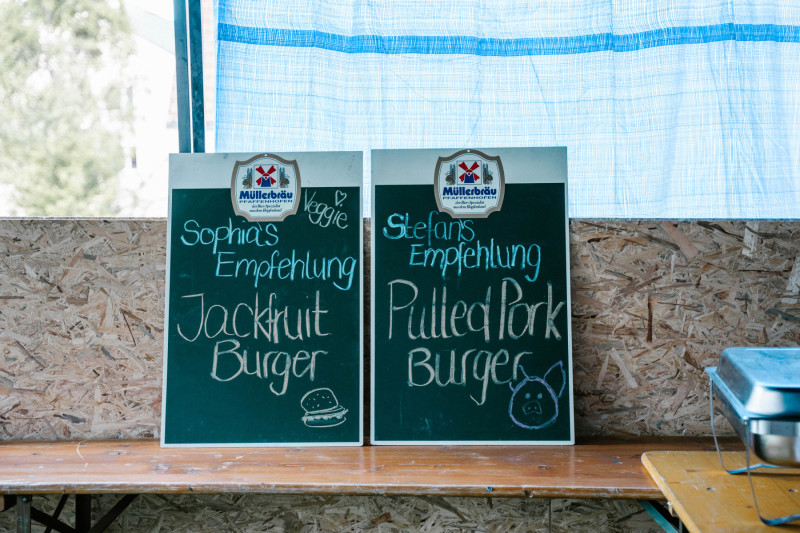 Müllerbräu
PFAFFENHOFEN
Veggie
Sophia's
Empfehlung
Jackfruit
Burger
Müllerbräu
PFAFFENHOFEN
Stefans
Empfehlung
Pulled Pork
Burger